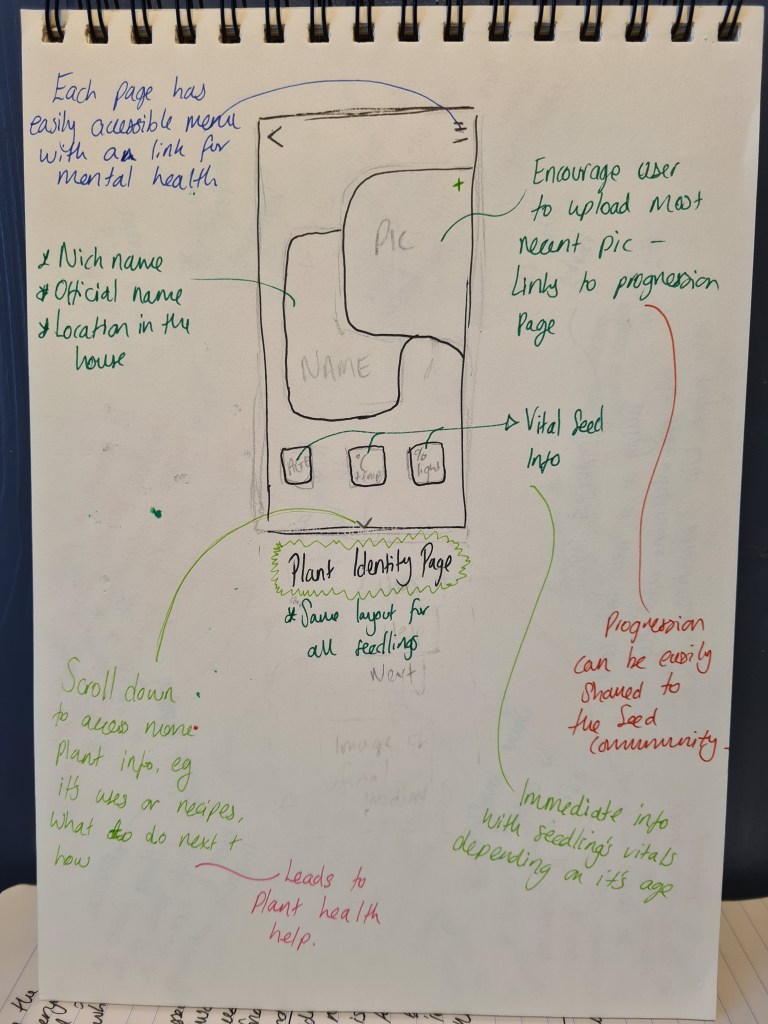 Each page has
easily accessible menu
with a link for
mental health
* Nich name
* Official name
* Location in the
house
PIC
+
NAME
Encourage user
to upload most
recent pic -
Links to progression
Page
AGE
°C
temp
%
light
Vital Seed
Info
Plant Identity Page
* Same layout for
all seedlings
Next
Image of
Progression
can be easily
shared to
the Seed
community.
Scroll down
to access more
plant info, eg
it's uses or recipes,
what to do next +
how
Immediate info
with seedling's vitals
depending on it's age
Leads to
Plant health
help.